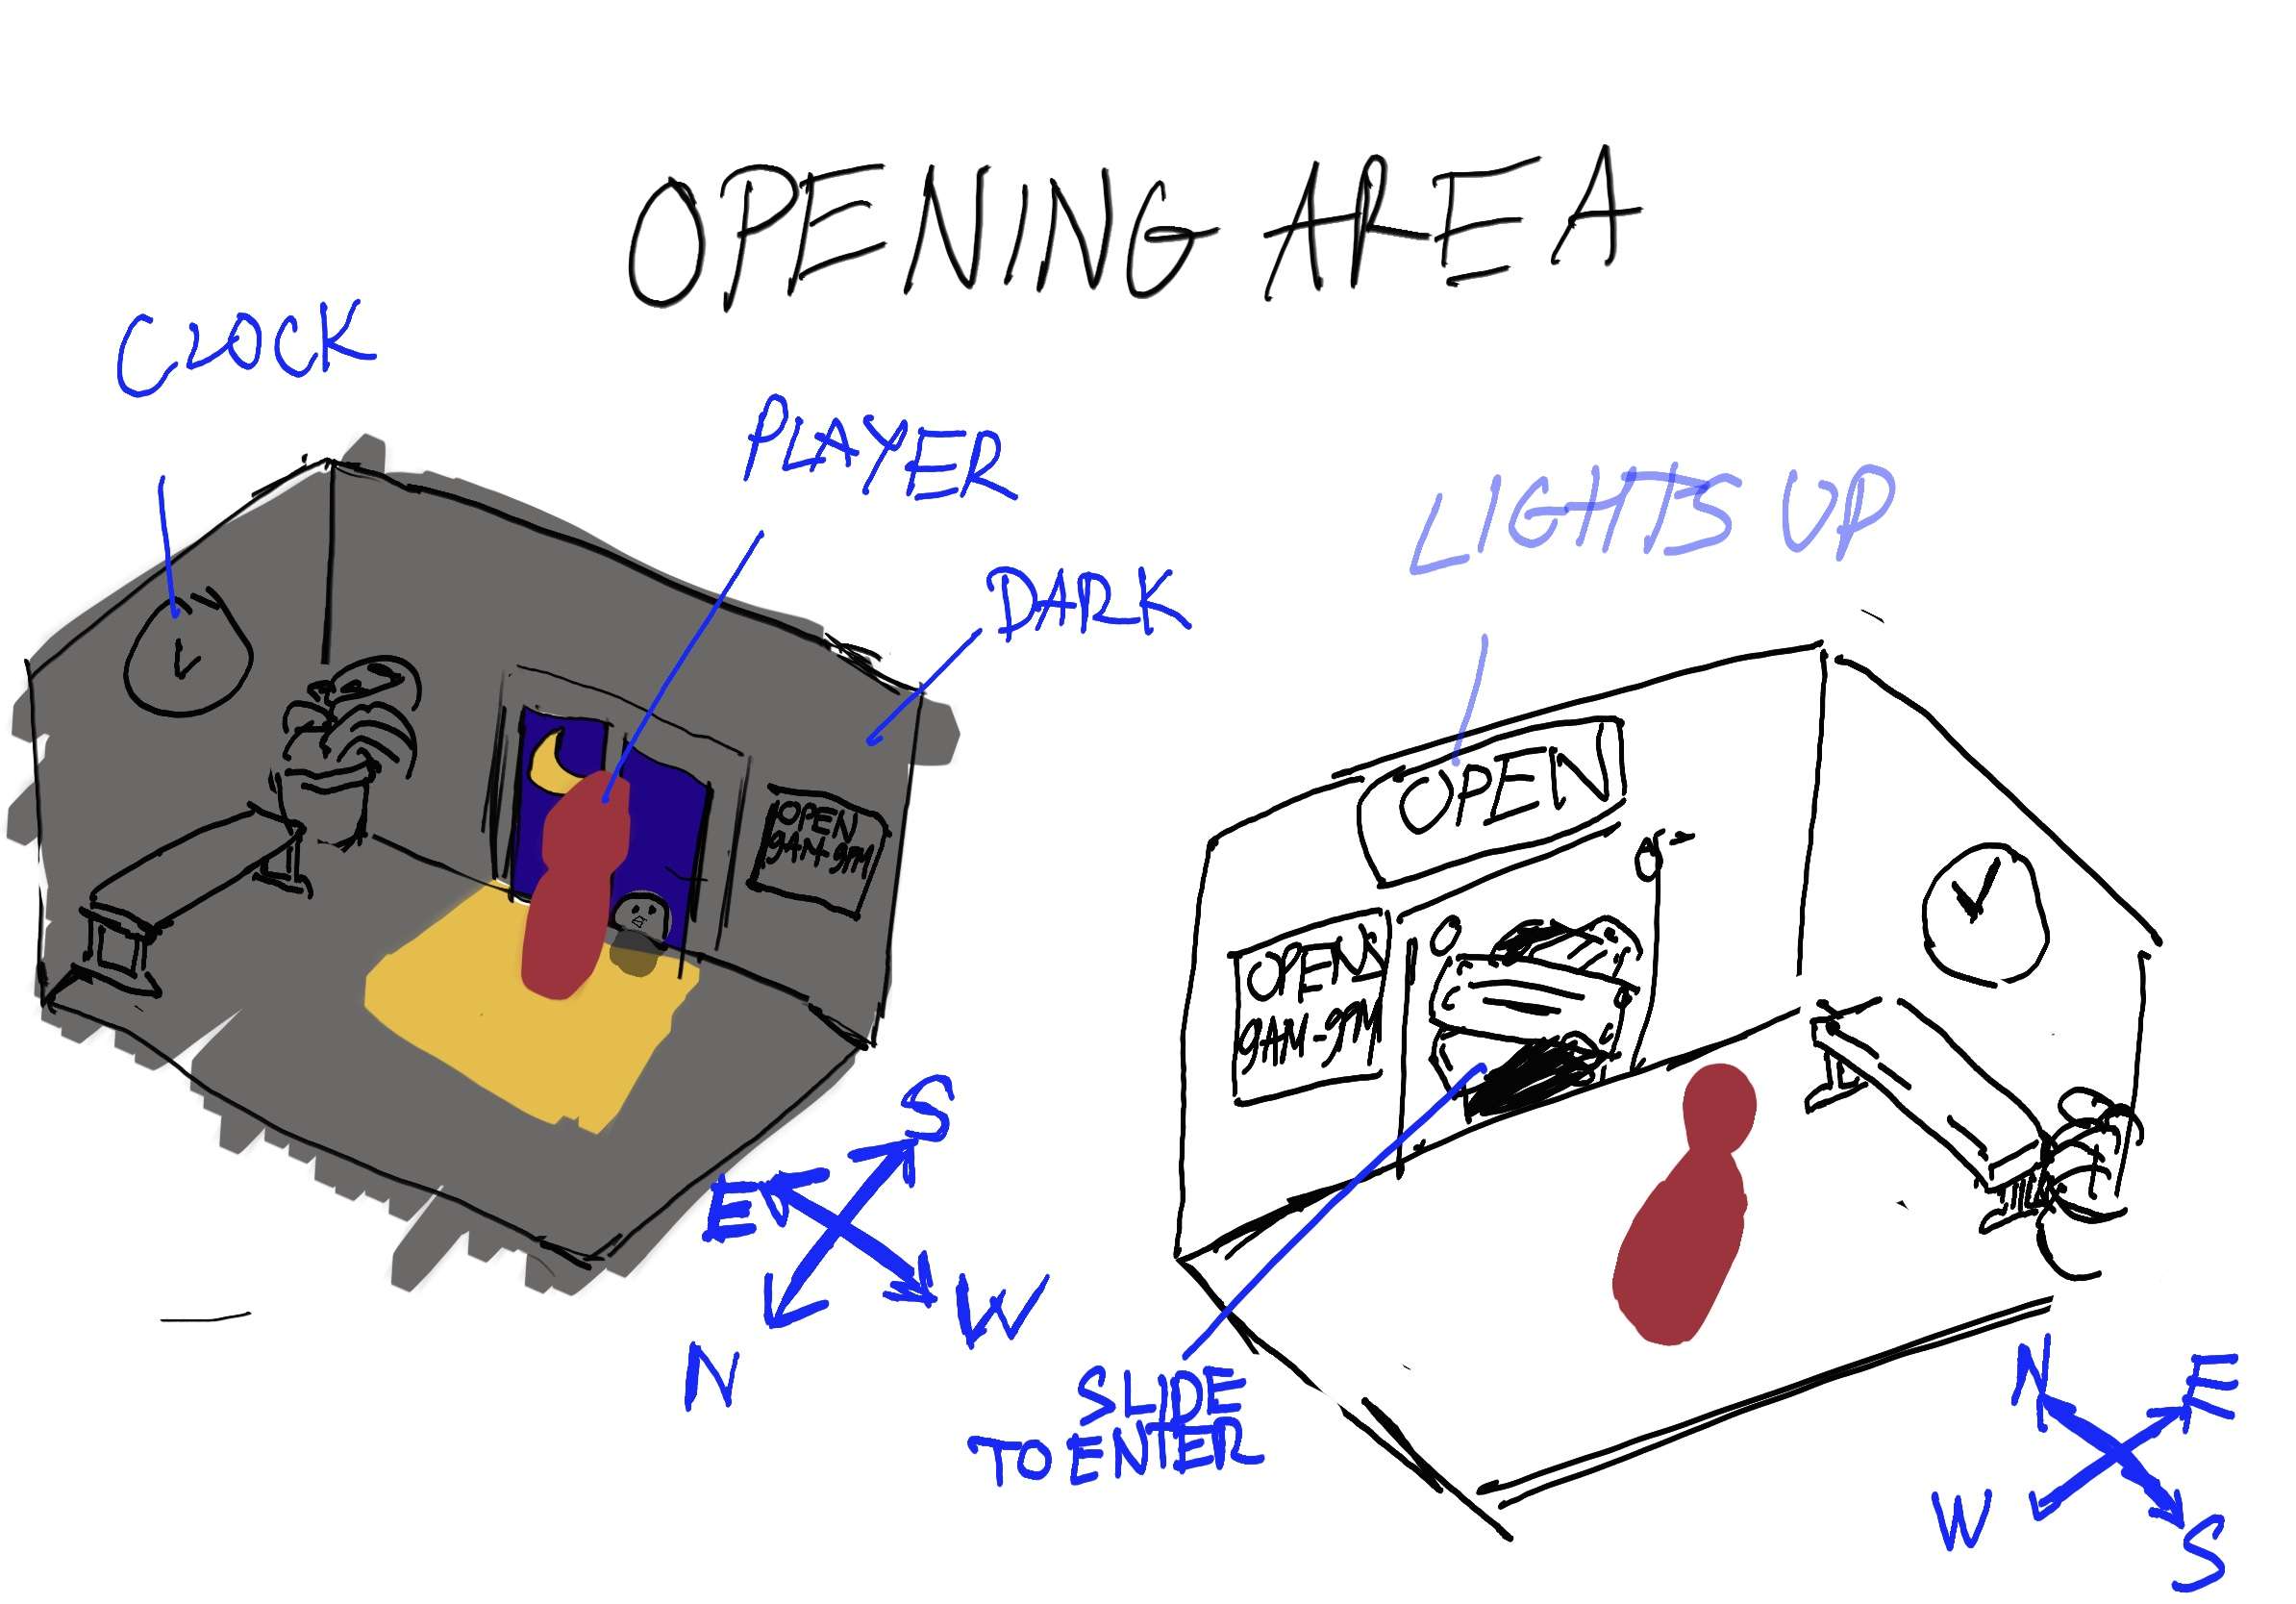 OPENING AREA
CLOCK
PLAYER
DARK
OPEN
9AM-9PM
S
E
W
N
LIGHTS UP
OPEN
OPEN
9AM-9PM
SLIDE
TO ENTER
N
E
W
S